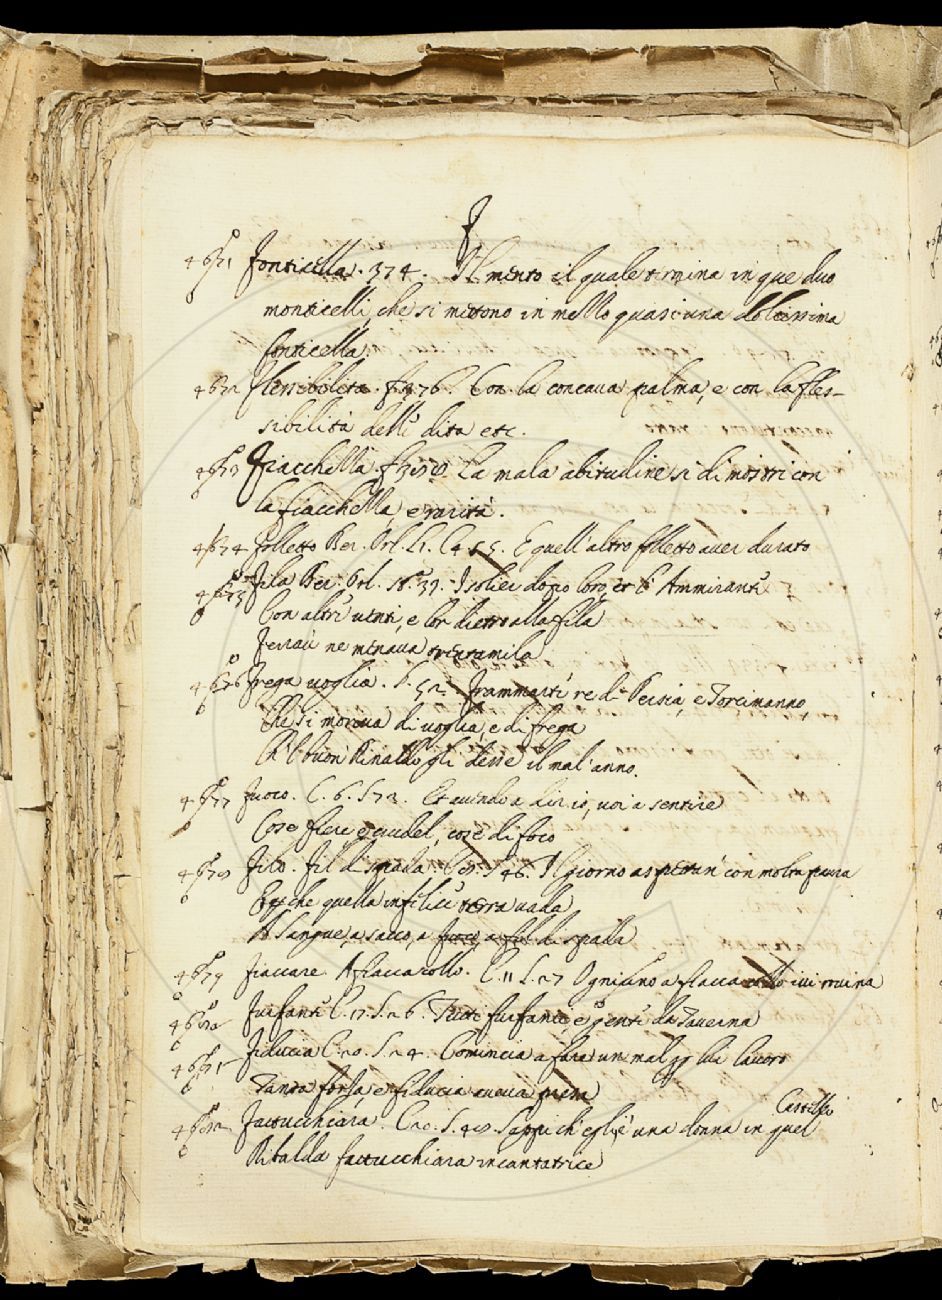 F
Fonticella. 374. Il mento il quale termina in que duo
monticelli, che si mettono in mezzo quasi una dolcissima
fonticella.
Flessibilità. f. 376. Con la concava palma, e con la fles-
sibilità delli dita etc.
Fiacchezza La mala abitudine si dimostri con
la fiacchezza, e rarità.
Folletto Ber. Orl. E quell'altro folletto aver durato
Fila Ber. Orl. 18. 39. Isolier dopo loro, et l'Ammiranti
Con altri venti, e lor dietro alla fila
Ferraù ne menava trentamila
Frega voglia. Framarti re di Persia, e Torcimanno,
Che si moreva di voglia, e di frega
Ch'l buon Rinaldo gli desse il mal'anno.
Fuoco. C. 6. S. Et avendo a dir io, voi a sentire
Cose fiere e crudel, cose di foco
Filo. Fil di spada. S. 46. Il giorno aspettan con molta paura
Che quella infelici terra vada
A sangue, a sacco, a fuoco, a fil di spada
Fiaccare A fiaccacollo. C. 11 S. 27 Ogniuno a fiacca collo ivi ruina
Furfanti C. 17. S. 26. Tutti furfanti, e genti da Taverna
Fiducia C. 20. S. 24. Comincia a fare un mal lavoro
Tanta forza, e fiducia aveva presa
Castello
Fattucchiara. C. 20. S. Sappi ch'egli è una donna in quel
Ribalda fattucchiara incantatrice